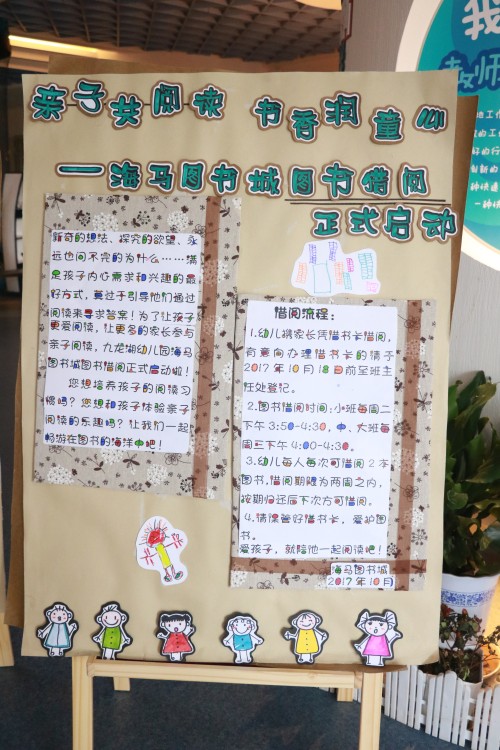 亲子共阅读 书香润童心
——海马图书城图书借阅
正式启动
新奇的想法、探究的欲望、永
远也问不完的为什么……满
足孩子内心需求和兴趣的最
好方式，莫过于引导他们通过
阅读来寻求答案！为了让孩子
更爱阅读，让更多的家长参与
亲子阅读，九龙湖幼儿园海马
图书城图书借阅正式启动啦！
您想培养孩子的阅读习
惯吗？您想和孩子体验亲子
阅读的乐趣吗？让我们一起
畅游在图书的海洋中吧！
借阅流程：
1.幼儿携家长凭借书卡借阅，
有意向办理借书卡的请于
2017年10月18日前至班主
任处登记。
2.图书借阅时间：小班每周二
下午3:50-4:30，中、大班每
周三下午4:00-4:30。
3.幼儿每人每次可借阅2本
图书，借阅期限为两周之内，
按期归还后下次方可借阅。
4.请保管好借书卡，爱护图
书。
爱孩子，就陪他一起阅读吧！
海马图书城
2017年10月
我
教师